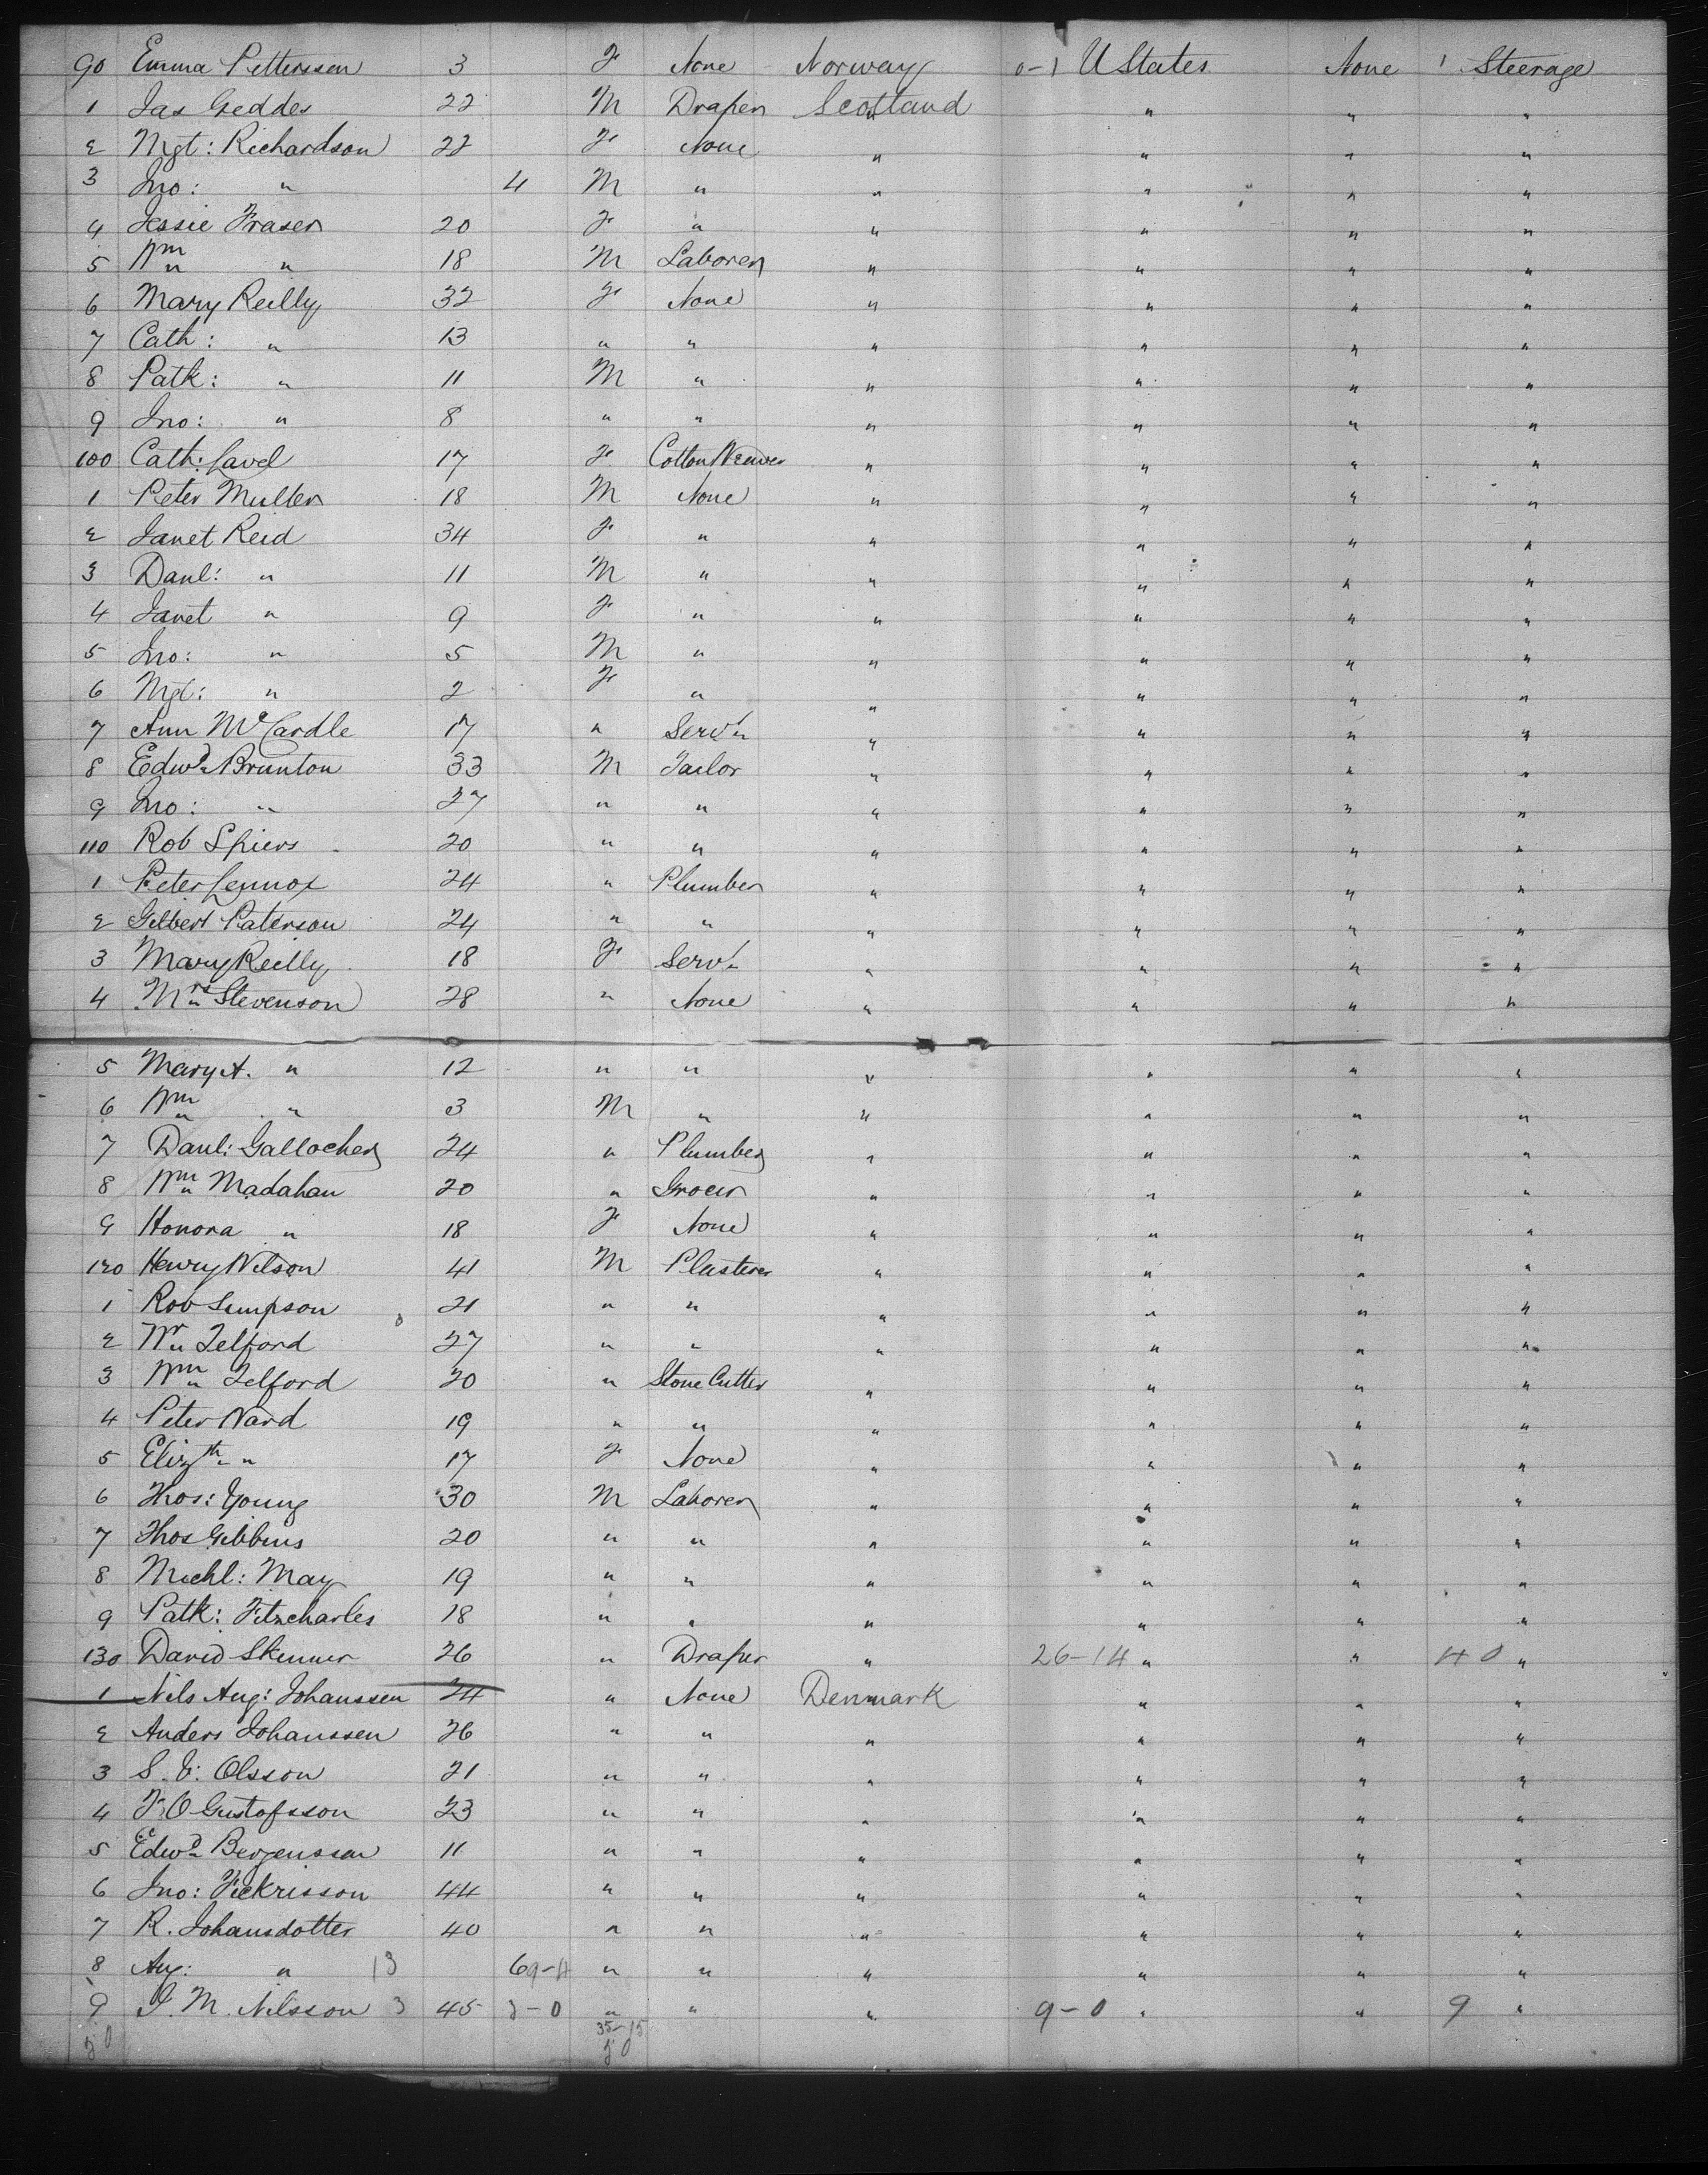 90 Emma Petterssen 3 F None Norway 0-1 U States None 1 Steerage
1 Jas Geddes 22 M Draper Scotland " " "
2 Mgt: Richardson 22 F None " " " "
3 Jno: " 4 M " " " " "
4 Jessie Fraser 20 F " " " " "
5 Wm " 18 M Laborer " " " "
6 Mary Reilly 32 F None " " " "
7 Cath: " 13 " " " " " "
8 Patk: " 11 M " " " " "
9 Jno: " 8 " " " " " "
100 Cath: Lavel 17 F Cotton Weaver " " " "
1 Peter Multen 18 M None " " " "
2 Janet Reid 34 F " " " " "
3 Danl: " 11 M " " " " "
4 Janet " 9 F " " " " "
5 Jno: " 5 M " " " " "
6 Mgt: " 2 F " " " " "
7 Ann McCardle 17 " Servt " " " "
8 Edwd Brunton 33 M Tailor " " " "
9 Jno: " 27 " " " " " "
110 Rob Spiers 20 " " " " " "
1 Peter Lennox 24 " Plumber " " " "
2 Gilbert Paterson 24 " " " " " "
3 Mary Reilly 18 F Servt " " " "
4 Mrs Stevenson 28 " None " " " "
5 Mary A. " 12 " " " " " "
6 Wm " 3 M " " " " "
7 Danl: Gallocher 24 " Plumber " " " "
8 Wm Madahan 20 " Grocer " " " "
9 Honora " 18 F None " " " "
120 Henry Wilson 41 M Plasterer " " " "
1 Rob Simpson 21 " " " " " "
2 Wm Telford 27 " " " " " "
3 Wm Telford 20 " Stone Cutter " " " "
4 Peter Ward 19 " " " " " "
5 Elizth " 17 F None " " " "
6 Thos: Young 30 M Laborer " " " "
7 Thos Gibbins 20 " " " " " "
8 Michl: May 19 " " " " " "
9 Patk: Fitzcharles 18 " " " " " "
130 David Skinner 26 " Draper " 26-14 " " 40 "
1 Nils Aug: Johanssen 24 " None Denmark " " "
2 Anders Johanssen 26 " " " " " "
3 S. V: Olsson 21 " " " " " "
4 F. O Gustofsson 23 " " " " " "
5 Edwd Bergenssen 11 " " " " " "
6 Jno: Fickrisson 44 " " " " " "
7 R. Johansdotter 40 " " " " " "
8 Aug: " 13 69-4 " " " " " "
9 J. M. Nilsson 3 45 3-0 " " " 9-0 " " 9 "
50 35-15
50